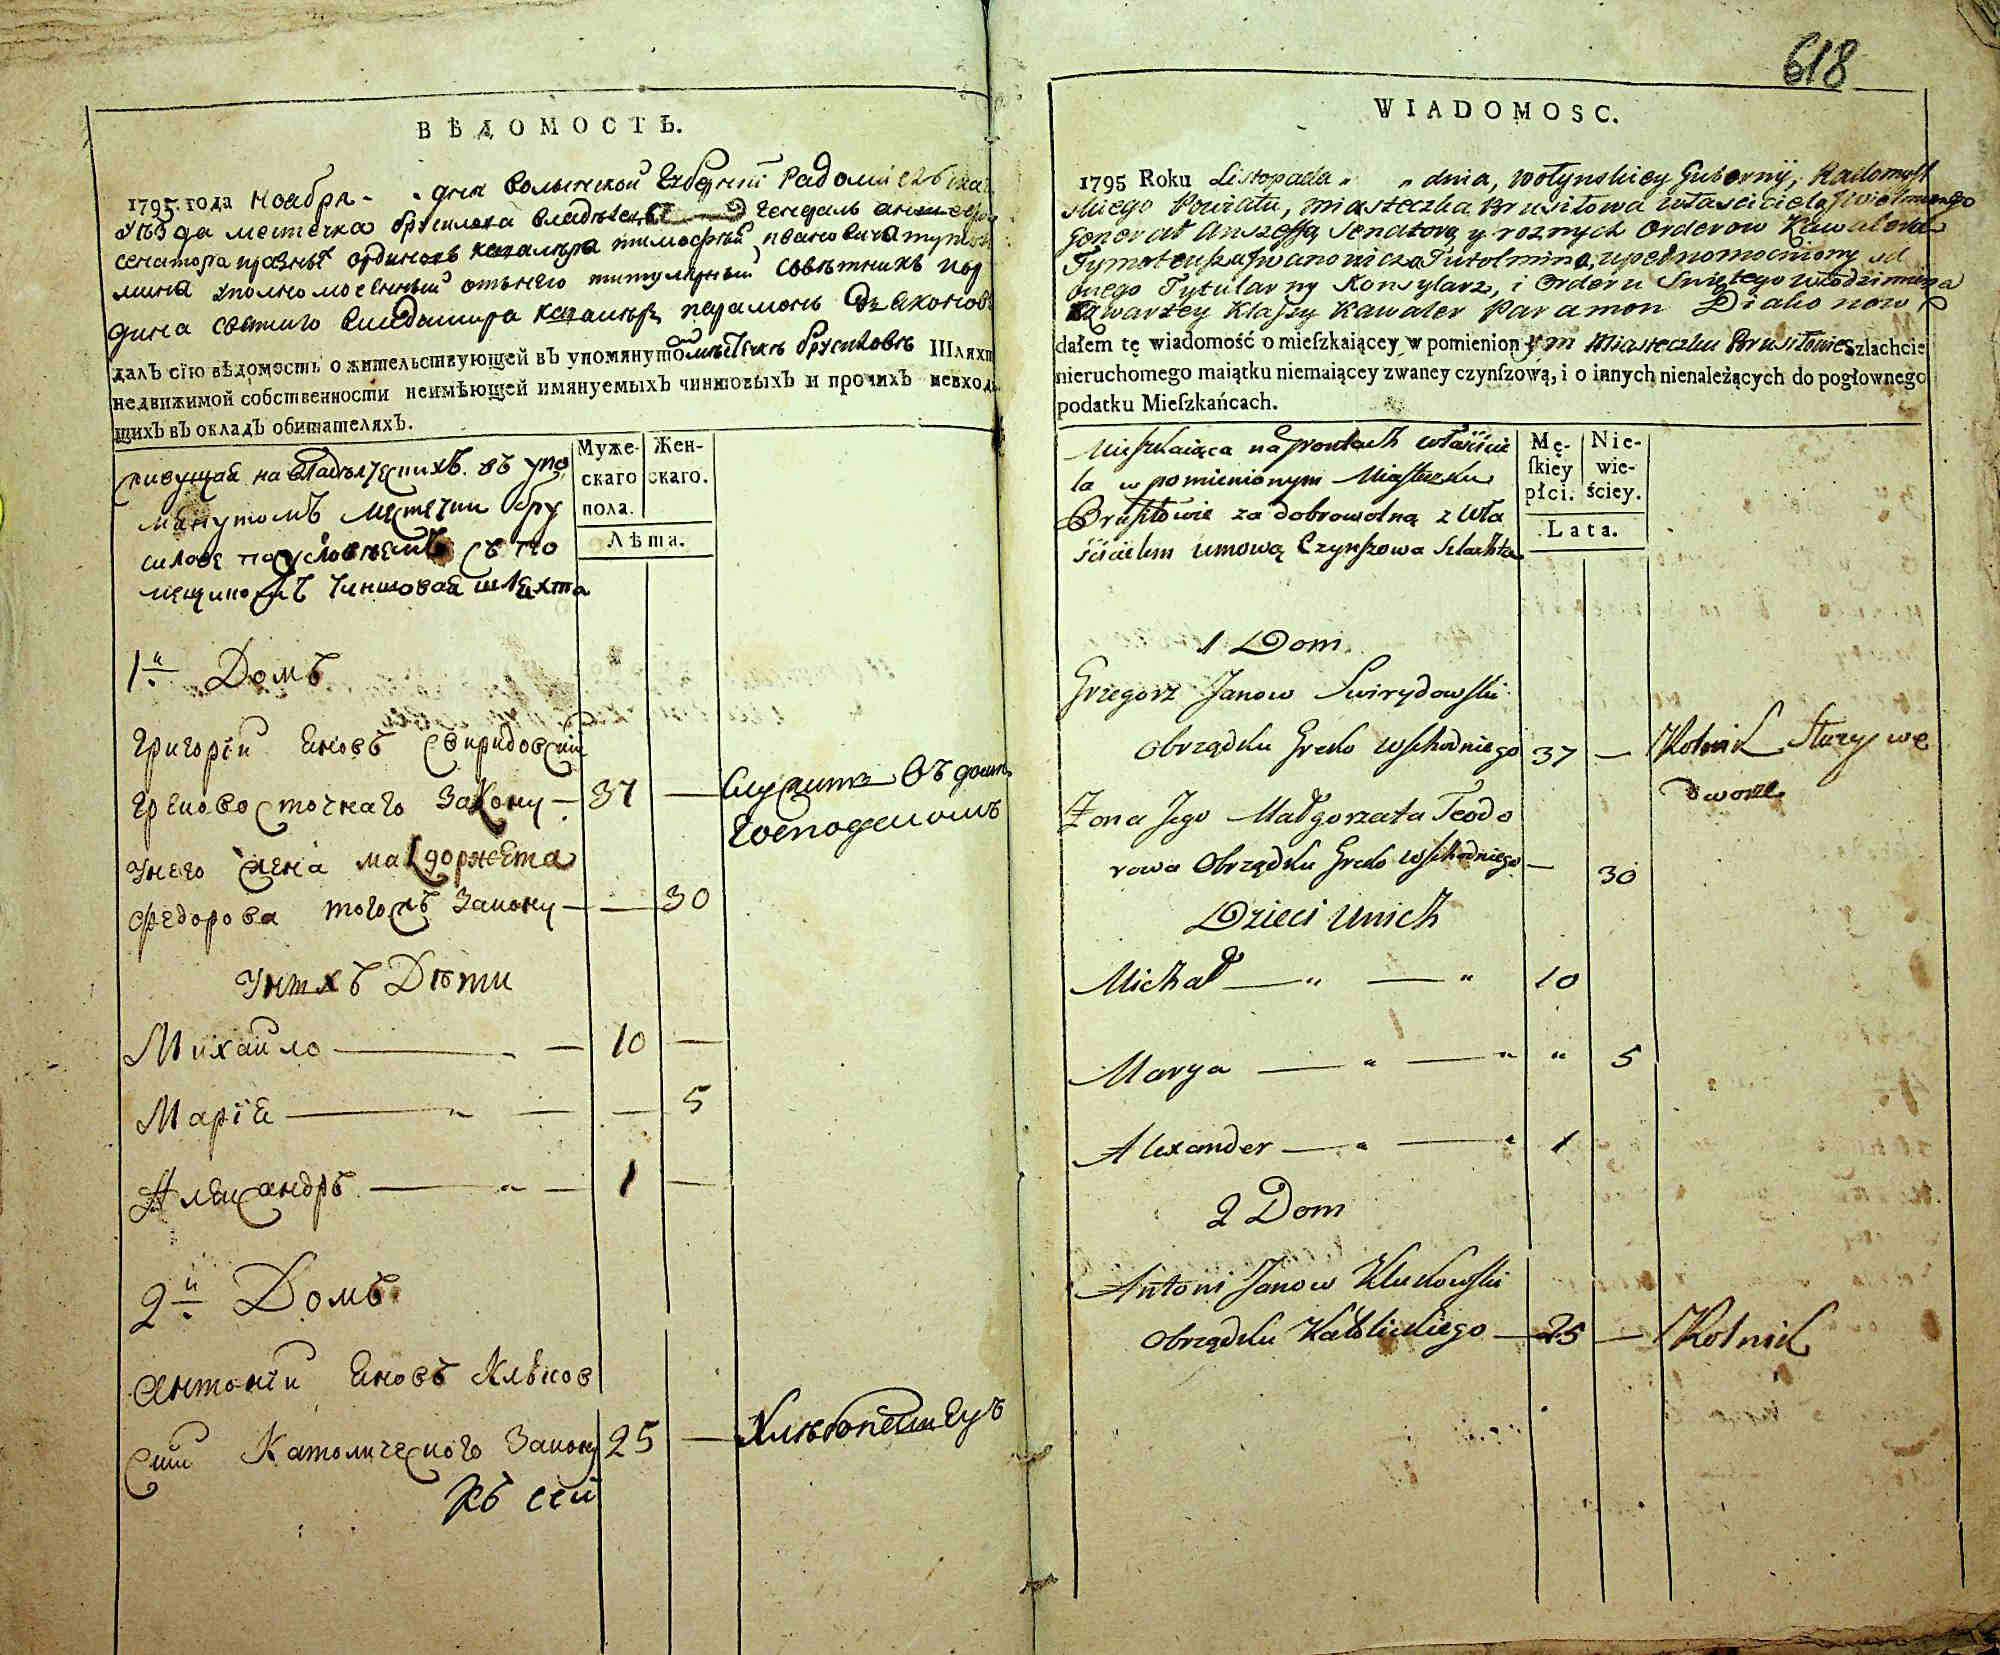 ВѢДОМОСТЬ.
1795 года Ноабря дня волынской Губерніи Радомисльскаг
уѣзда местечка брусилова владѣтеля Генераль аншефа
сенатора разныхъ ординовъ кавалера тимофѣй ивановича тутол
мина уполномоченный отънего титулярный совѣтникъ иор
дина святаго владимира кавалеръ парамонъ Дьяконовъ
далъ сїю вѣдомость о жительствующей въ упомянутомъ местечкѣ брусиловѣ Шляхт
недвижимой собственности неимѣющей имянуемыхъ чиншовыхъ и прочихъ невход
щихъ въ окладъ обитателяхъ.
живущая на владѣлческихъ въ упо
мянутомъ местечки бру
силове поусловіемъ съ по
мещикомъ чиншовая шляхта
Муже-
скаго
пола.
Жен-
скаго.
Лѣта.
1й Домъ
Григорїй Яновъ Свиридовскій
Грековосточнаго Закону — 37 — Служитъ въ домѣ
Господскомъ
Унего жена малгоржета
Федорова тогожъ Закону — — 30
Унихъ Дѣти
Михаило — — 10 —
Марія — — — 5
Александръ — — 1 —
2й Домъ
Антоній Яновъ Клѣков
Скій Католического Закону 25 — Хлебопашецъ
къ сей
618
WIADOMOSC.
1795 Roku Listopada " " dnia, wołynskiey Gubernÿ, Radomysl
skiego Powiatu, miasteczka Brusiłowa własciciela Jwielmożnego
Generał Anszeffa Senatora y roznych Orderow Kawalera
Tymoteusza Jwanowicza Tutolmina, upełnomocniony od
onego Tytularny Konsylarz, i Orderu Swiętego Włodzimierza
Czwartey Klassy Kawaler Paramon Diakonow
dałem tę wiadomość o mieſzkaiącey w pomienionym Miasteczku Brusiłowie Szlachcie
nieruchomego maiątku niemaiącey zwaney czynſzową, i o innych nienależących do pogłownego
podatku Mieſzkańcach.
Mieszkaiąca na gruntach właście
la w pomienionym Miasteczku
Brusiłowie za dobrowolną z wła
ścicielem umową Czynszowa Szlachta
Mę-
ſkiey
płci.
Nie-
wie-
ściey.
Lata.
1 Dom
Grzegorz Janow Swirydowski
Obrządku Greko wschodniego 37 — Rolnik Służy we
dworze
Żona Jego Małgorzata Teodo
rowa Obrządku Greko wschodniego — 30
Dzieci Unich
Michał — " — " 10
Marya — " — " " 5
Alexander — " — " 1
2 Dom
Antoni Janow Klukowski
Obrządku Katolickiego — 25 — Rolnik